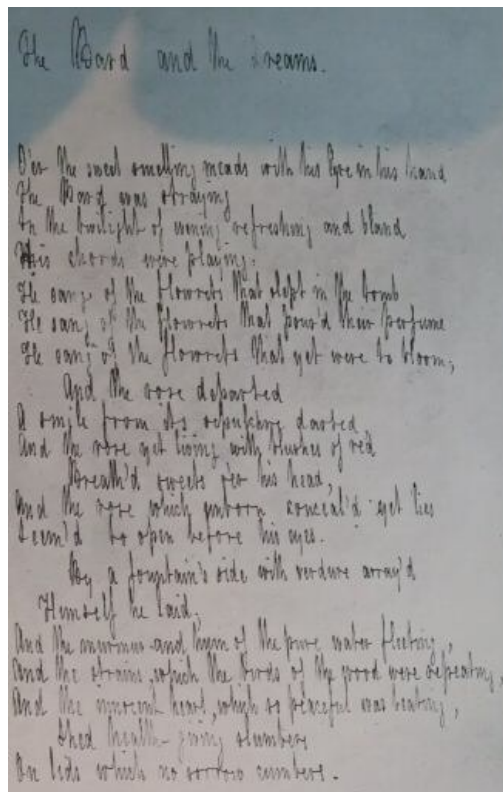 The Bard and the Dreams.
O'er the sweet smelling meads with his lyre in his hand
The Bard was straying
In the twilight of evening refreshing and bland
His chords were playing.
He sang of the flowrets that slept in the tomb
He sang of the flowrets that pour'd their perfume
He sang of the flowrets that yet were to bloom;
And the rose departed
A smile from its sepulchre darted
And the rose yet living with blushes of red
Breath'd sweets o'er his head,
And the rose which unborn conceal'd yet lies
Seem'd to open before his eyes.
By a fountain's side with verdure array'd
Himself he laid;
And the murmur and hum of the pure water fleeting,
And the strains, which the birds of the wood were repeating,
And the innocent heart, which so peaceful was beating,
Shed health-giving slumbers
On lids which no sorrow cumbers.